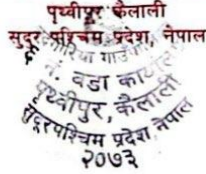 पृथ्वीपुर कैलाली
सुदूर पश्चिम प्रदेश, नेपाल
नं. वडा कार्या
पृथ्वीपुर, कैलाली
सुदूरपश्चिम प्रदेश नेपाल
२०७३